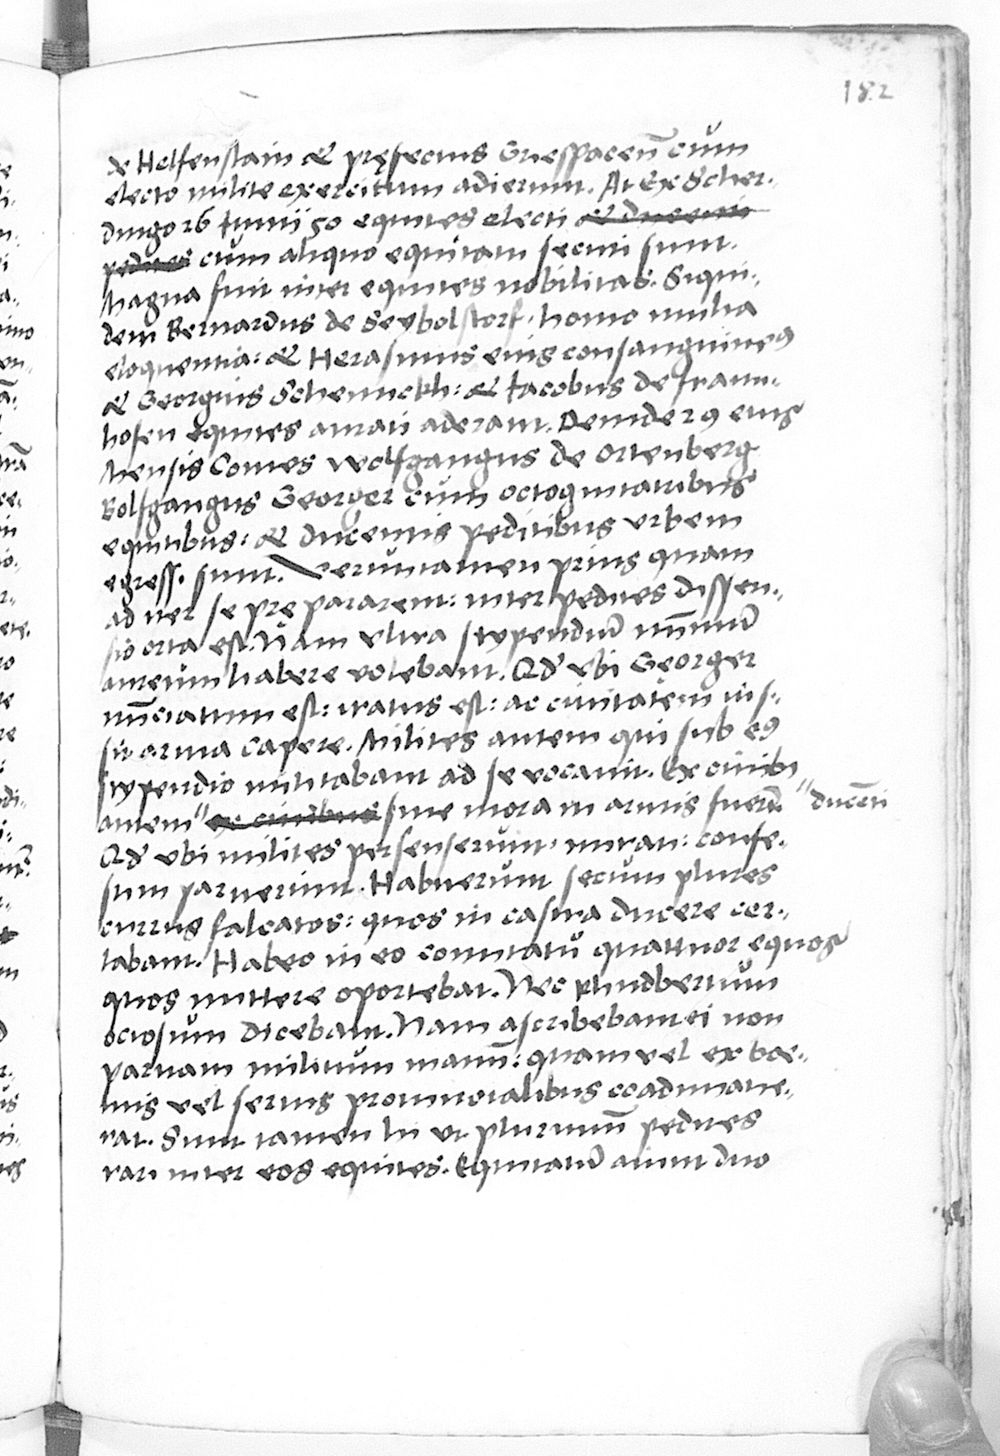 182
de Helfenstain & pręfectus Griesspaceñ cum
electo milite exercitum adierunt. At Ex Scher-
dingo 26 Iunii 50 equites electi & ducenti
pedites cum aliquo equitatu secuti sunt.
Magna fuit inter equites nobilitas. Siqui-
dem Bernardus de Seybolstorf, homo multa
eloquentia: & Herasmus eius consanguineꝰ
& Georgius Schenuckh: & Iacobus de fraun-
hofen equites aurati aderant. Deinde 29 eius
Mensis Comes Wolfgangus de Ortenberg
Bolfgangus Georger cum octoginta tribus
equitibus: & ducentis peditibus urbem
egress. sunt. Veruntamen prius quam
ad iter se pre pararent: inter pedites dissen-
sio orta est. Nam ultra stypendiū nūmū
aureum habere volebant. Qd ubi Georger
nūciatum est: iratus est: ac civitatem ius-
sit arma capere. Milites autem qui sub eꝰ
stypendio militabant ad se vocavit. Ex civibꝰ
autem " ex civibus sine mora in armis fuerūt " ducēti
Qd ubi milites persenserunt, mirati: confe-
stim paruerunt. Habuerunt secum plures
currus falcatos: quos in castra ducere cer-
tabant. Habeo in eo comitatu quattuor equos
quos mittere oportebat. Nec Phudbertum
ociosum dicebant. Nam ascribebant ei non
parvam militum manū: quam vel ex boe-
mis vel servis provincialibus coadunave-
rat. Sunt tamen hi ut plurimū pedites
rari inter eos equites. Equitatū aiunt duo